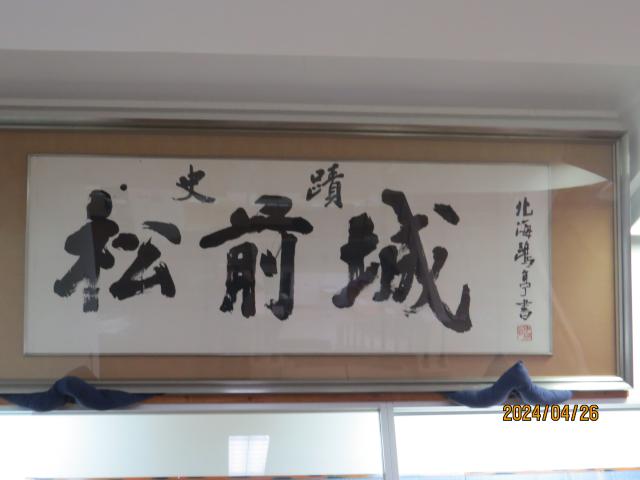 史蹟
松前城
北海鵬亭書
2024/04/26